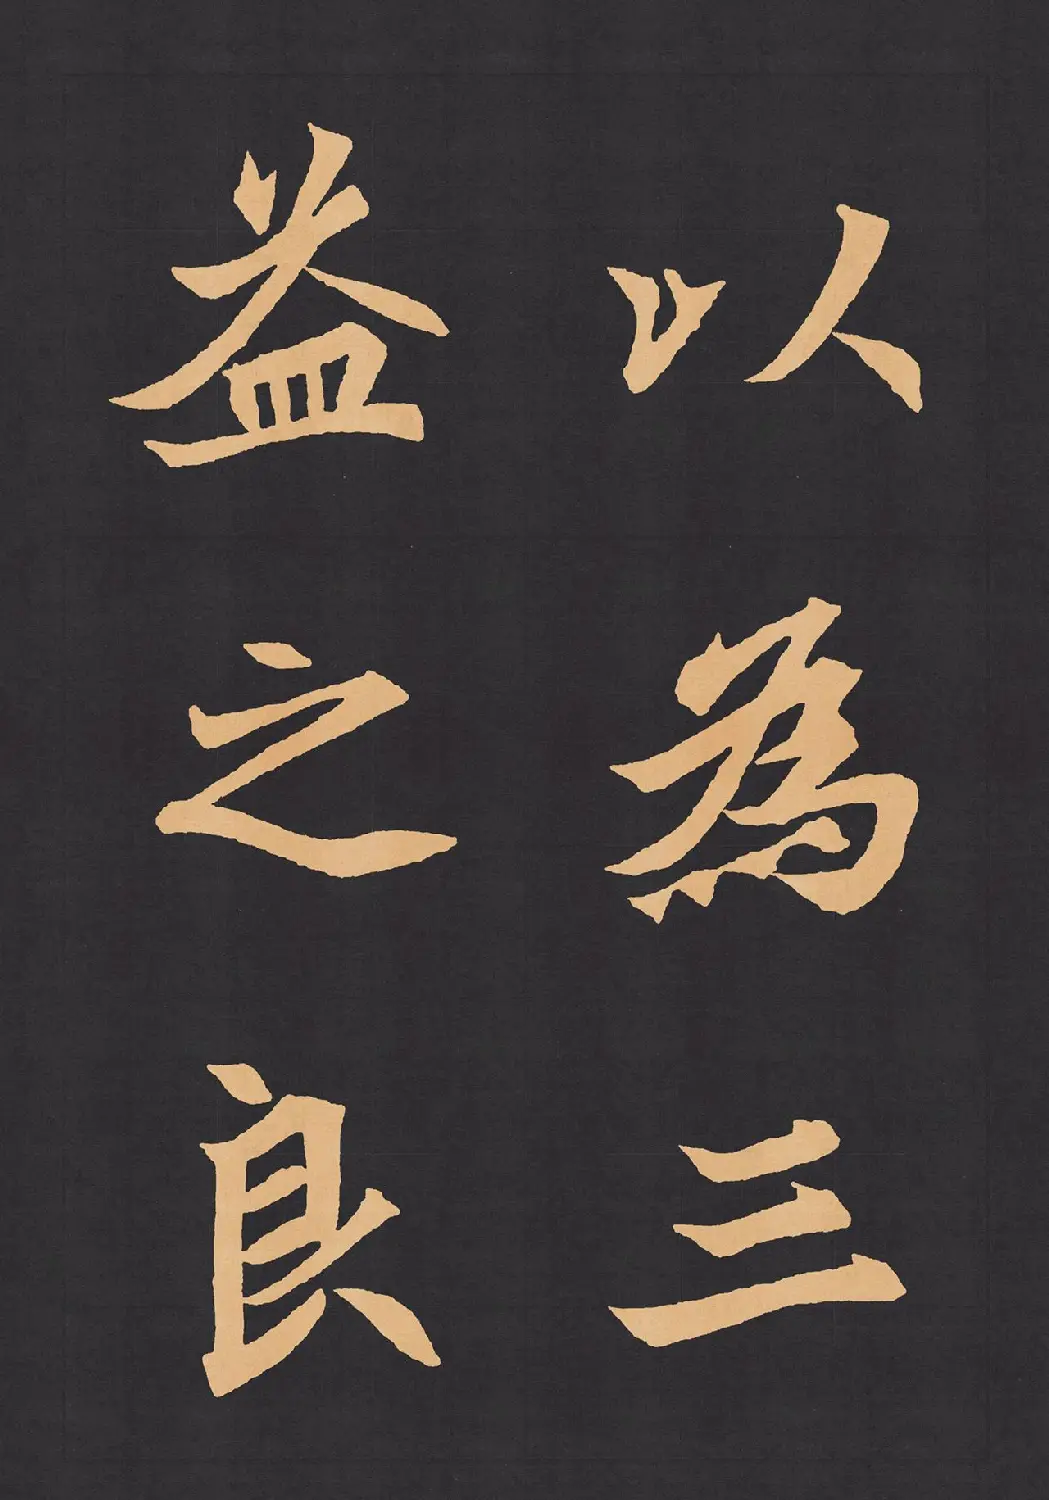 以為三
益之良